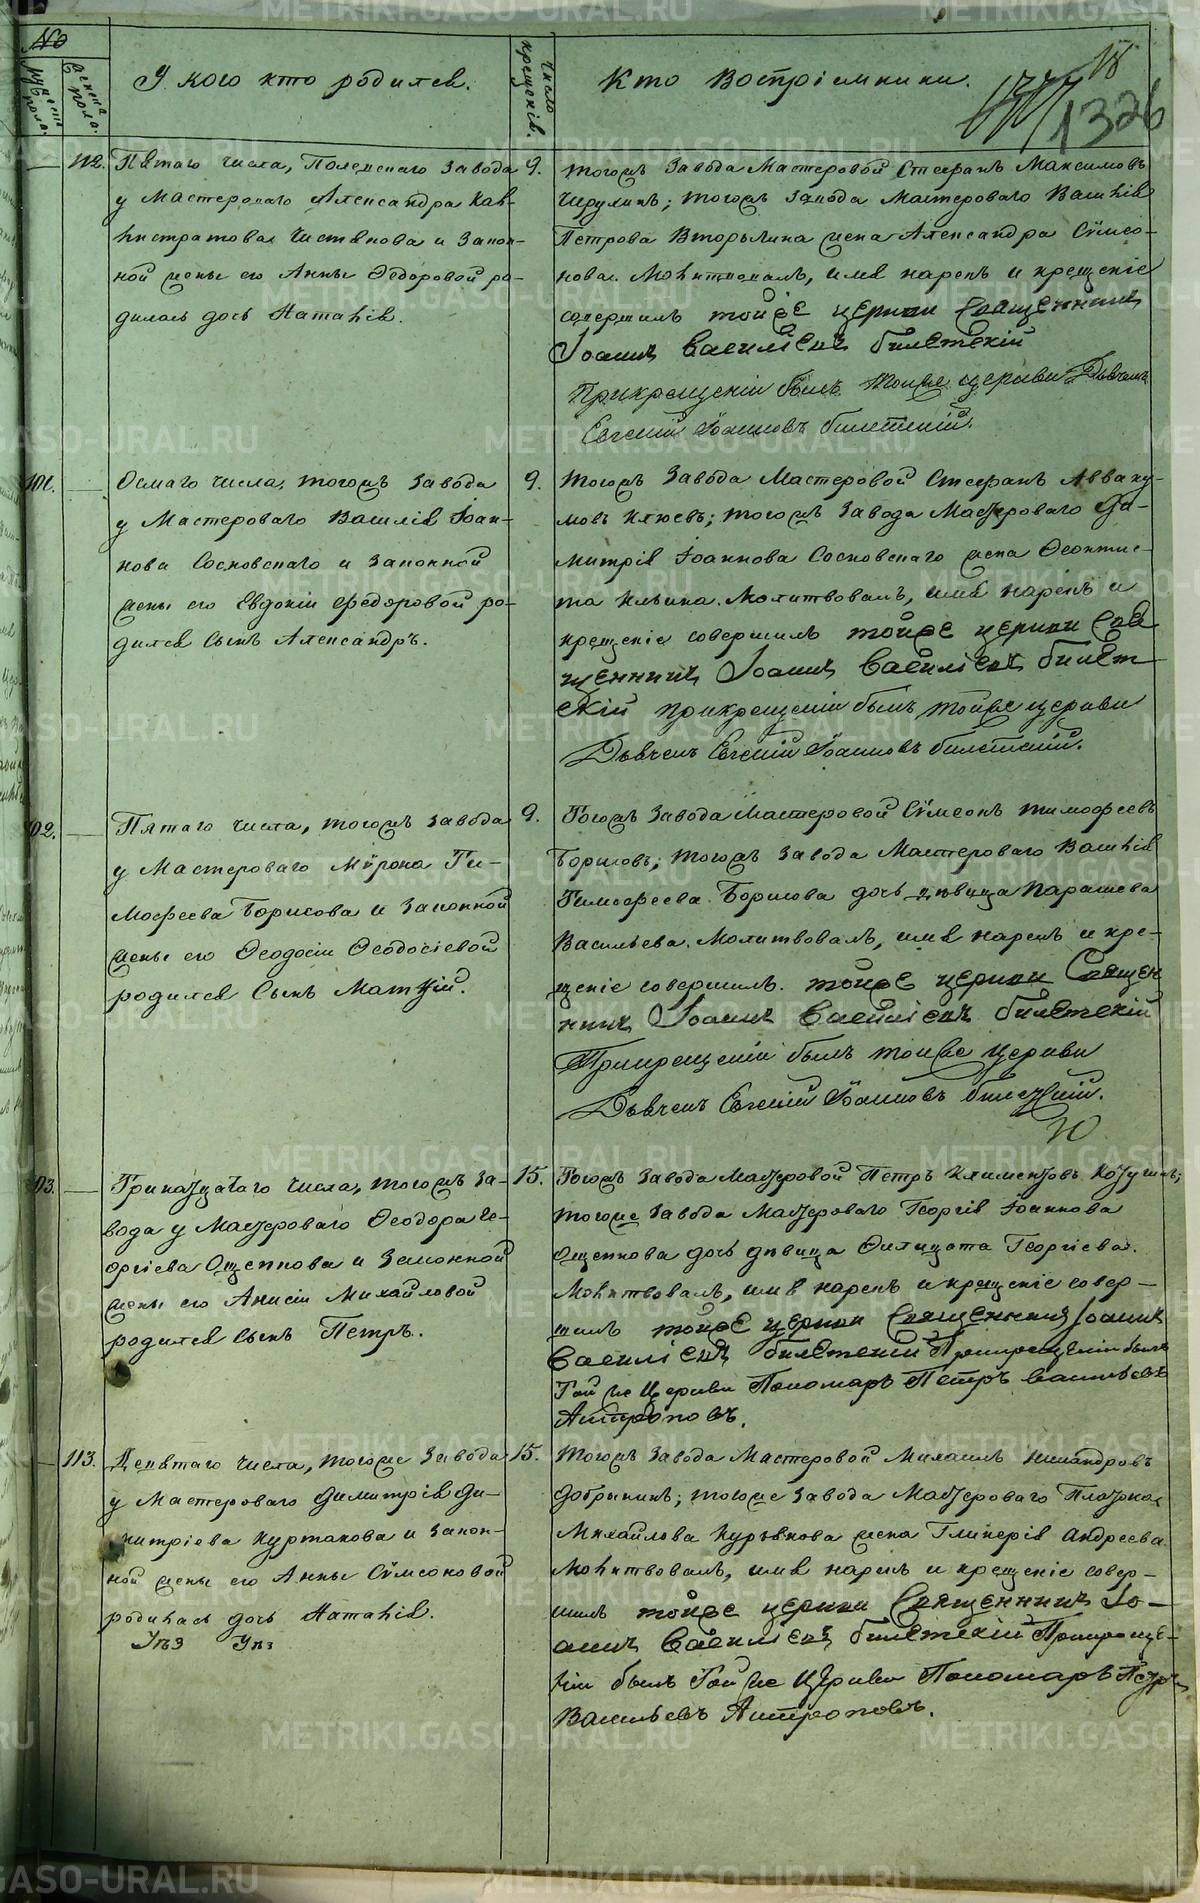 №
мужеска пола.
женска пола.
У кого кто родился.
число крещенія.
Кто Воспріемники.
18
1326
112.
Пятаго числа, Полевскаго завода
у Мастероваго Александра Кал-
листратова Чистякова и закон-
ной жены его Анны Ѳедоровой ро-
дилась дочь Наталія.
9.
тогожъ завода Мастеровой Стефанъ Максимовъ
; тогожъ завода Мастероваго Василія
Петрова Вторыгина жена Александра Сѵмео-
нова. Молитвовалъ, имя нарекъ и крещеніе
совершилъ тойже церкви Священникъ
Іоаннъ Василіевъ Билетскій
При крещеніи былъ тойже церкви Дьячекъ
Евгеній Іоанновъ Билетскій.
101.
Осмаго числа, тогожъ завода
у Мастероваго Василія Іоан-
нова Сосновскаго и законной
жены его Евдокіи Ѳедоровой ро-
дился сынъ Александръ.
9.
Тогожъ завода Мастеровой Стефанъ Авваку-
мовъ Клюевъ; тогожъ завода Мастероваго Ди-
митрія Іоаннова Сосновскаго жена Ѳеоктис-
та Ильина. Молитвовалъ, имя нарекъ и
крещеніе совершилъ тойже церкви Свя
щенникъ Іоаннъ Василіевъ Билет
скій при крещеніи былъ тойже церкви
Дьячекъ Евгеній Іоанновъ Билетскій.
102.
Пятаго числа, тогожъ завода
у Мастероваго Мѵрона Ти-
моѳеева Борисова и законной
жены его Ѳеодосіи Ѳеодосіевой
родился сынъ Матѳій.
9.
Тогожъ завода Мастеровой Сѵмеонъ Тимоѳеевъ
Борисовъ; тогожъ завода Мастероваго Василія
Тимоѳеева Борисова дочь дѣвица Парасква
Васильева. Молитвовалъ, имя нарекъ и кре-
щеніе совершилъ. тойже церкви Священ
никъ Іоаннъ Василіевъ Билетскій
При крещеніи былъ тойже церкви
Дьячекъ Евгеній Іоанновъ Билетскій.
103.
Тринадцатаго числа, тогожъ за-
вода у Мастероваго Ѳеодора Ге-
оргіева Ощепкова и законной
жены его Анисіи Михайловой
родился сынъ Петръ.
15.
Тогожъ завода Мастеровой Петръ Климентовъ
тогоже завода Мастероваго Георгія Іоаннова
Ощепкова дочь дѣвица Филицата Георгіева.
Молитвовалъ, имя нарекъ и крещеніе совер-
шилъ тойже церкви Священникъ Іоаннъ
Василіевъ Билетскій При крещеніи былъ
Той же Церкви Пономарь Петръ Васильевъ
Антроповъ.
113.
Девятаго числа, тогоже завода
у Мастероваго Димитрія Ди-
митріева Куртакова и закон-
ной жены его Анны Сѵмеоновой
родилась дочь Наталія.
15.
Тогожъ завода Мастеровой Михаилъ Никандровъ
Добрынинъ; тогоже завода Мастероваго Платона
Михайлова жена Гликерія Андреева.
Молитвовалъ, имя нарекъ и крещеніе совер-
шилъ тойже церкви Священникъ Іо-
аннъ Василіевъ Билетскій При креще-
ніи былъ Той же Церкви Пономарь Петръ
Васильевъ Антроповъ.
METRIKI.GASO-URAL.RU